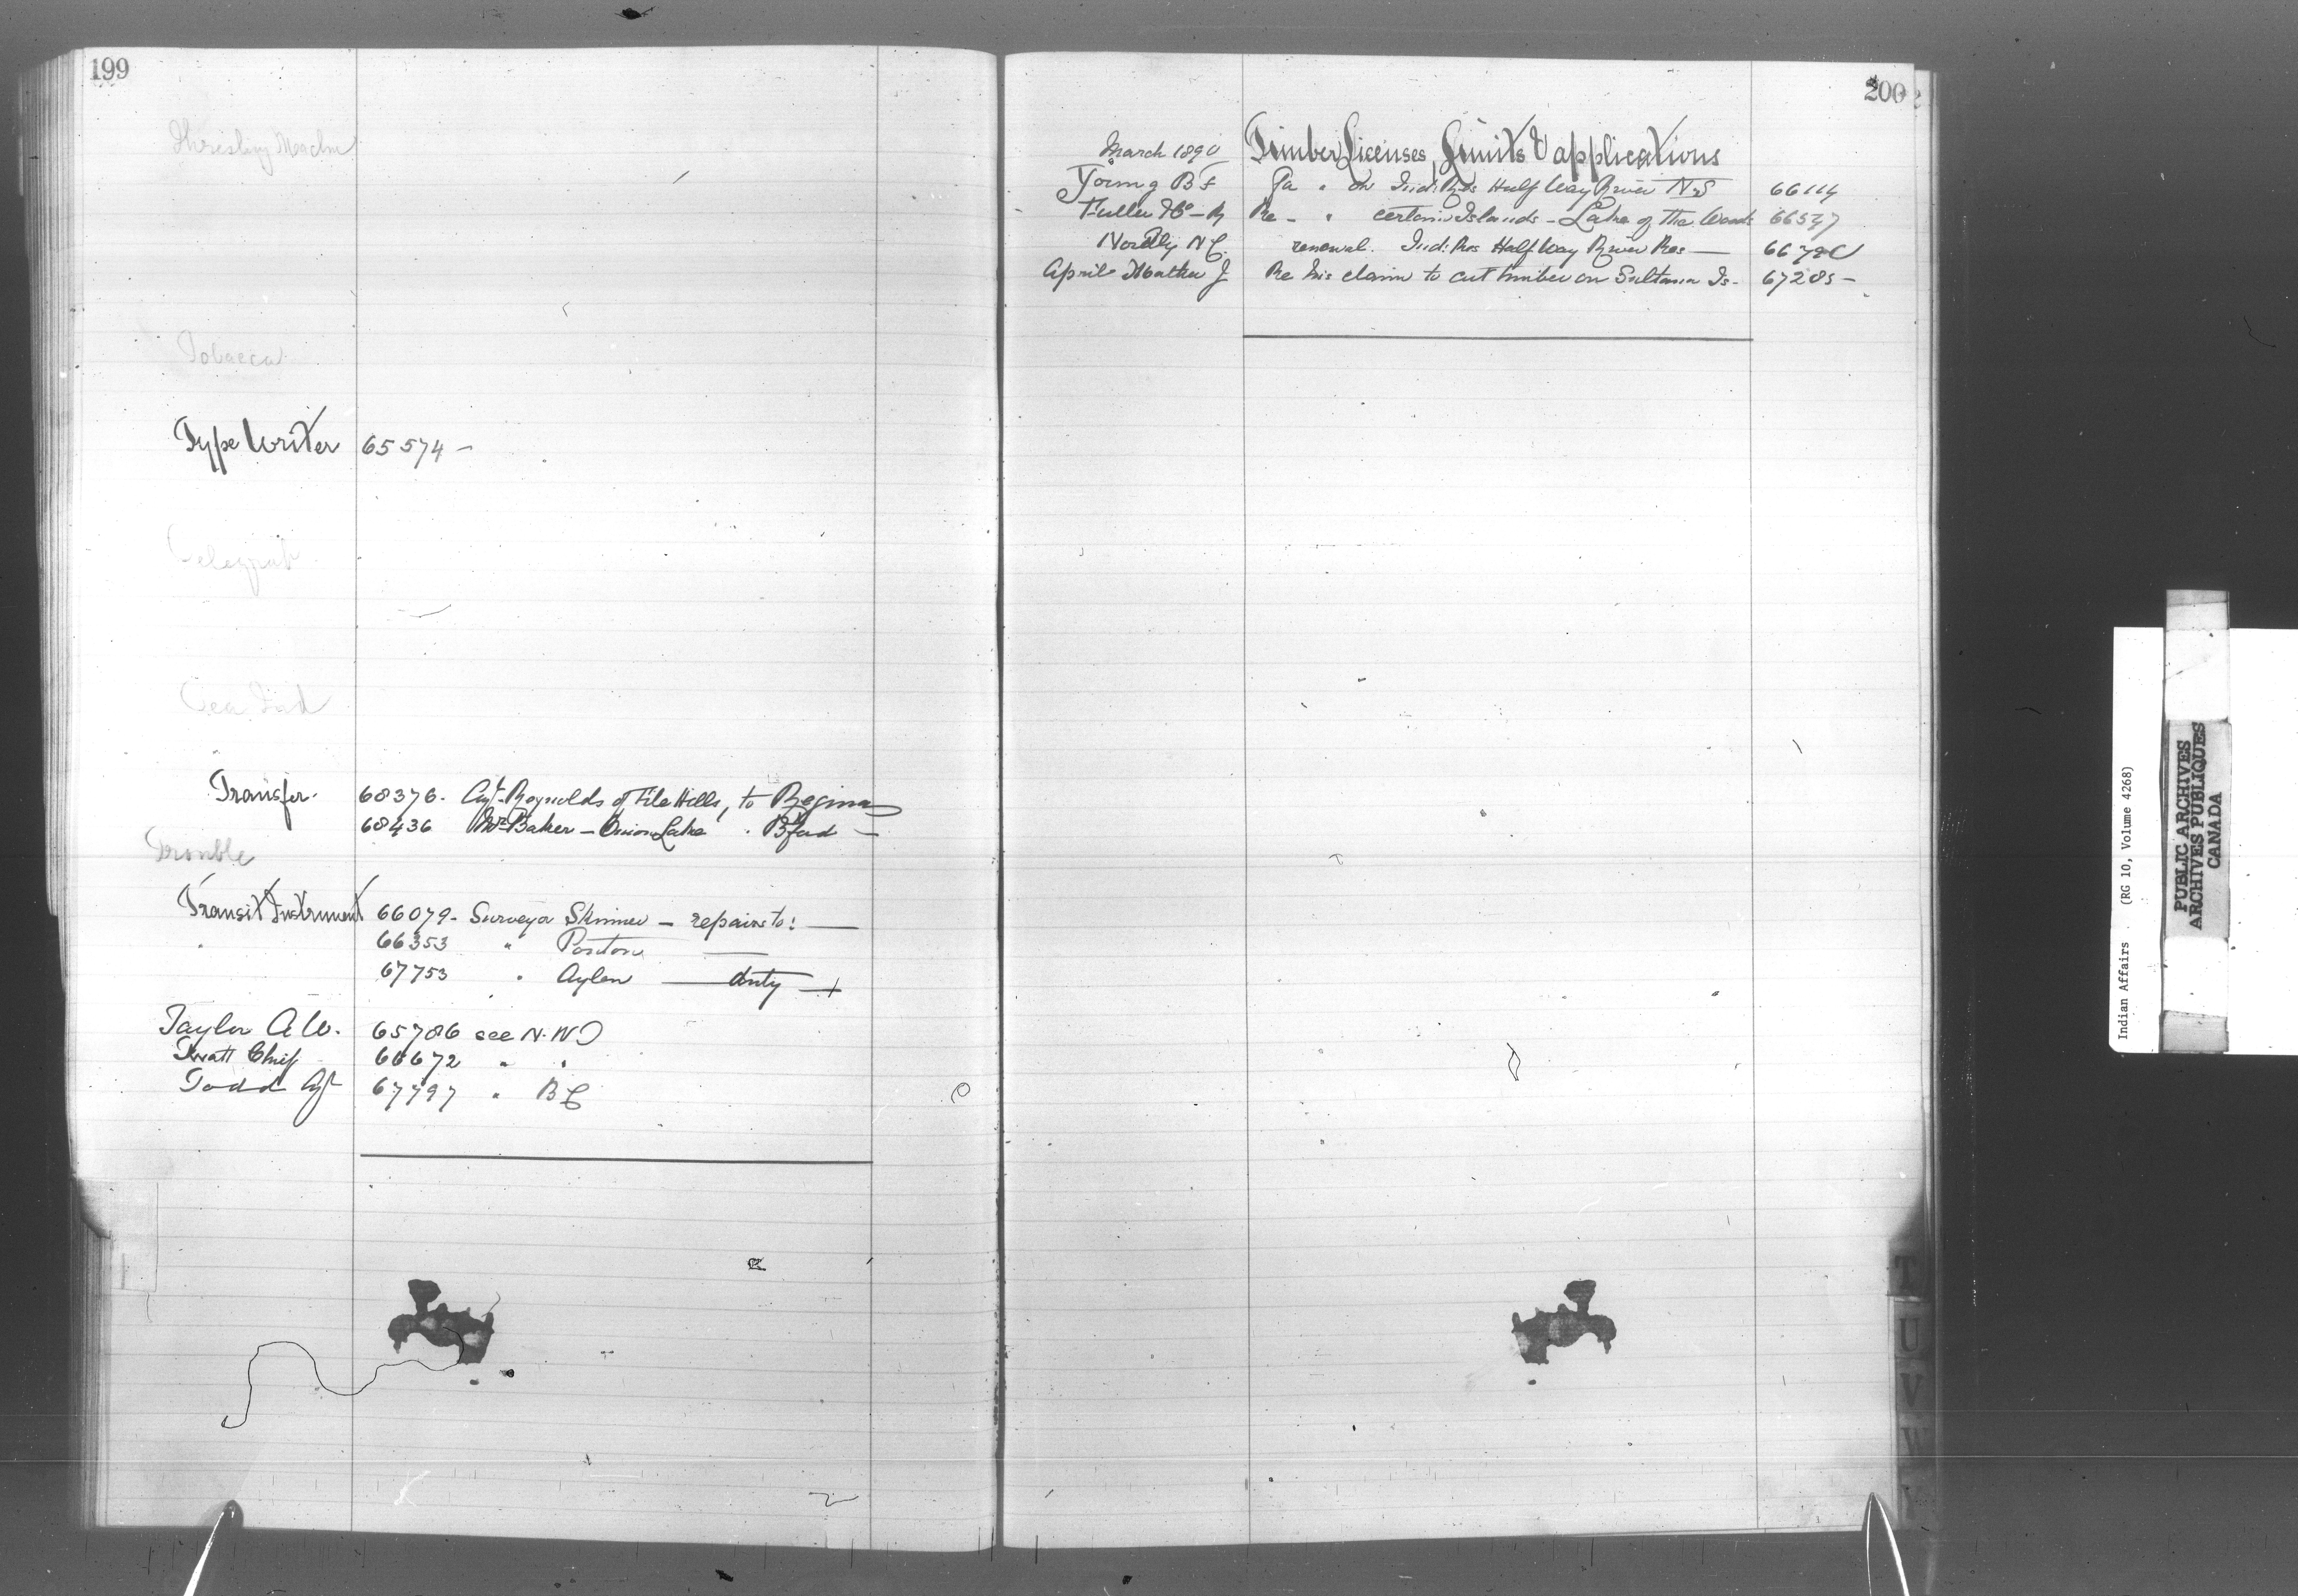 199
Threshing Machn
Tobacco
Type Writer 65574 –
Telegraph
Tea
Transfer. 68376. Agt. Reynolds of File Hills, to Regina
68436 Mr. Baker – Onion Lake . Bford –
Trouble
Transit Instrument 66079. Surveyor Skinner – repairs to: —
66353 " —
67753 " Aylen — duty —
Taylor A W. 65786 see N. W
Chief 66672 " "
Todd Agt 67797 " B C
200
March 1890 Timber Licenses, Limits & applications
Young B F " on Ind: Res Half Way River N S 66114
Fuller Re – " certain Islands – Lake of the Woods 66547
N C. renewal. Ind: Res Half Way River Res —
April Mather J Re his claim to cut timber on Sultana Is. 67285 –
T
U
V
W
Y
Indian Affairs (RG 10, Volume 4268)
PUBLIC ARCHIVES
ARCHIVES PUBLIQUES
CANADA